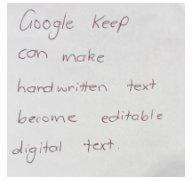 Google Keep
can make
handwritten text
become editable
digital text.